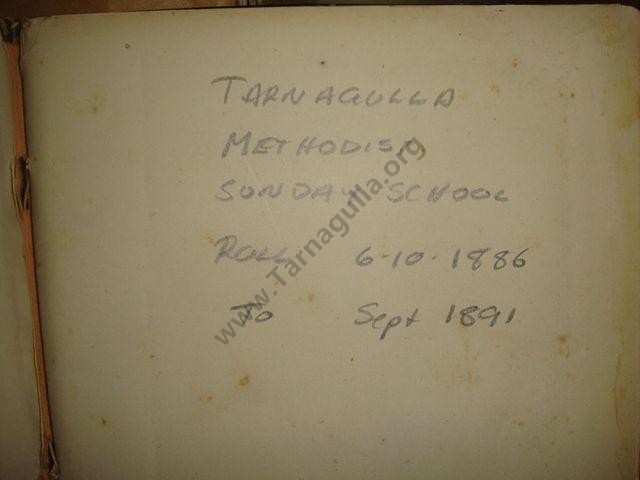 TARNAGULLA
METHODIST
SUNDAY SCHOOL
ROLL 6-10-1886
To Sept 1891
www.Tarnagulla.org